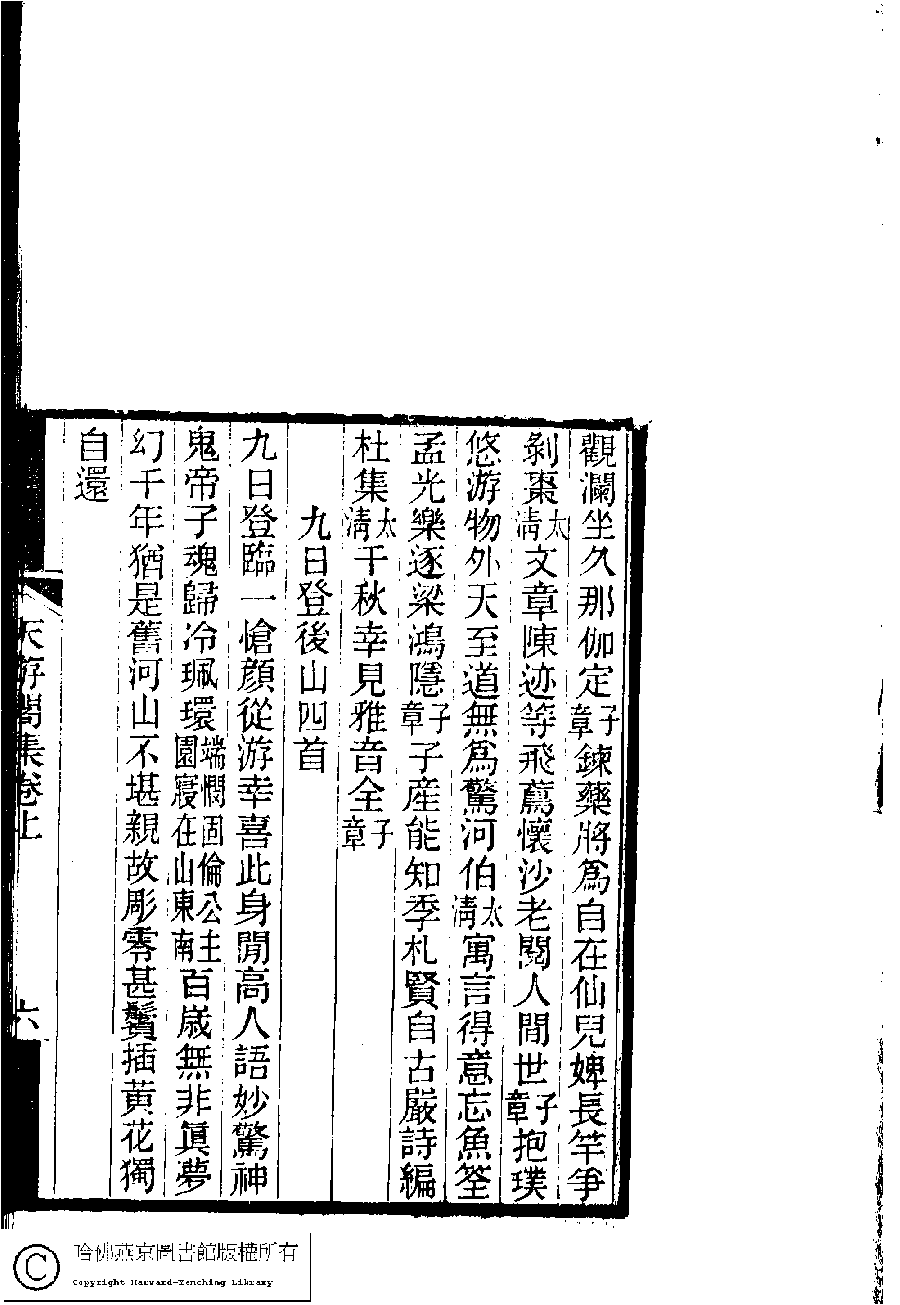 觀瀾坐久那伽定子章鍊藥將爲自在仙兒婢長竿爭
剝棗太淸文章陳迹等飛蔿懷沙老閱人閒世子章抱璞
悠游物外天至道無爲驚河伯太淸寓言得意忘魚筌
孟光樂逐梁鴻隱子章子產能知季札賢自古嚴詩編
杜集太淸千秋幸見雅音全子章
九日登後山四首
九日登臨一愴顏從游幸喜此身閒高人語妙驚神
鬼帝子魂歸冷珮環端憫固倫公主園寢在山東南百歲無非眞夢
幻千年猶是舊河山不堪親故彫零甚鬢插黃花獨
自還
天游閣集卷上
六
哈佛燕京圖書館版權所有
Copyright Harvard-Yenching Library